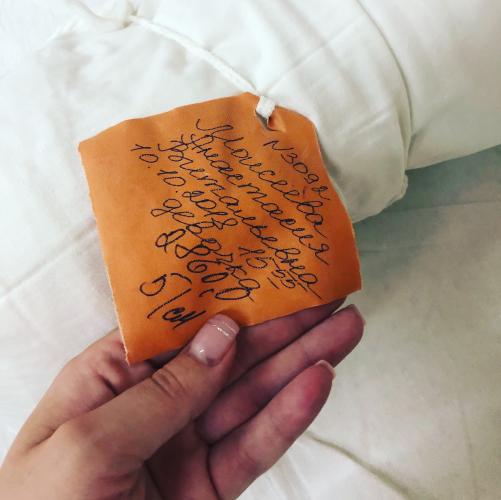 N3092
Моисеева
Анастасия
Витальевна
10.10.2018 15-55
девочка
2860,0
51см